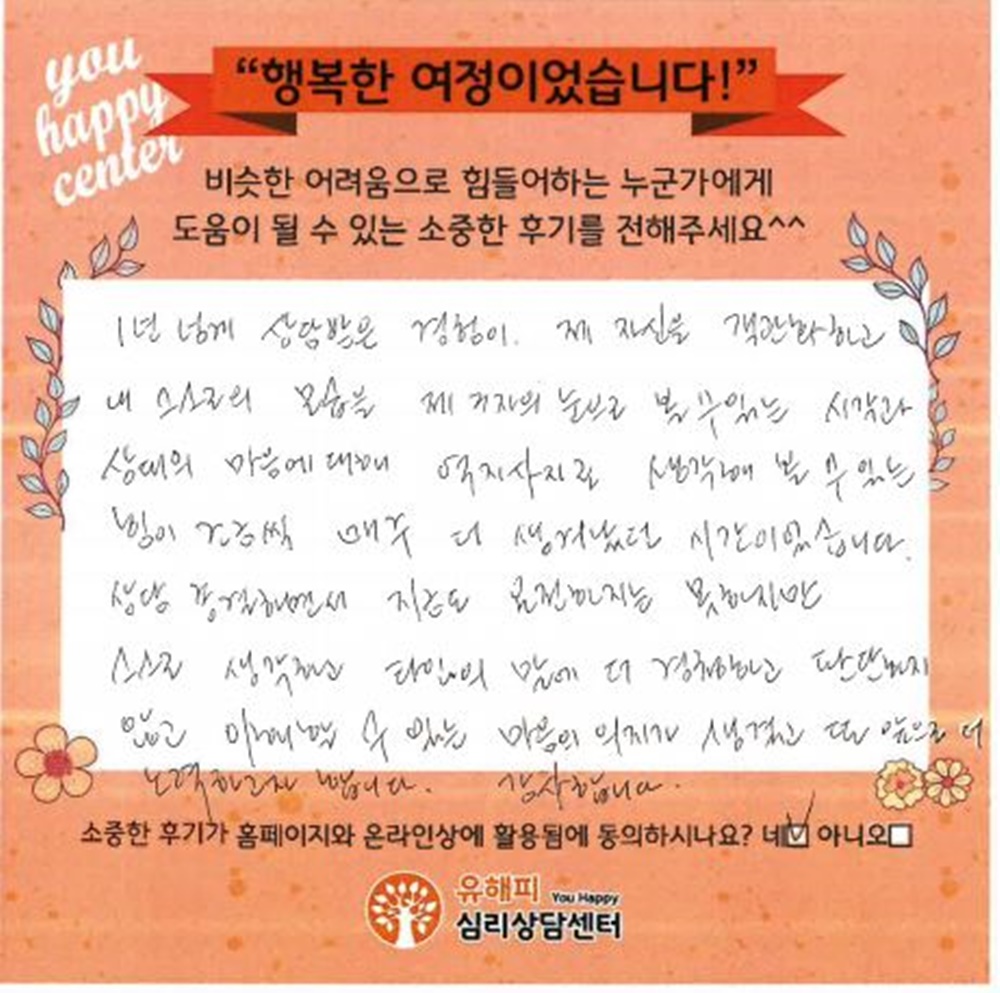 you
happy
center
“행복한 여정이었습니다!”
비슷한 어려움으로 힘들어하는 누군가에게
도움이 될 수 있는 소중한 후기를 전해주세요^^
1년 넘게 상담받은 경험이. 제 자신을 객관화하고
내 스스로의 모습을 제 3자의 눈으로 볼 수 있는 시각과
상대의 마음에 대해 역지사지로 생각해 볼 수 있는
힘이 조금씩 매주 더 생겨났던 시간이었습니다.
상담 종결하면서 지금도 온전하지는 못하지만
스스로 생각하고 타인의 말에 더 경청하고 판단하지
않고 이해할 수 있는 마음의 의지가 생겼고 또 앞으로 더
노력하고자 합니다. 감사합니다.
소중한 후기가 홈페이지와 온라인상에 활용됨에 동의하시나요? 네☑ 아니오☐
유해피 You Happy
심리상담센터